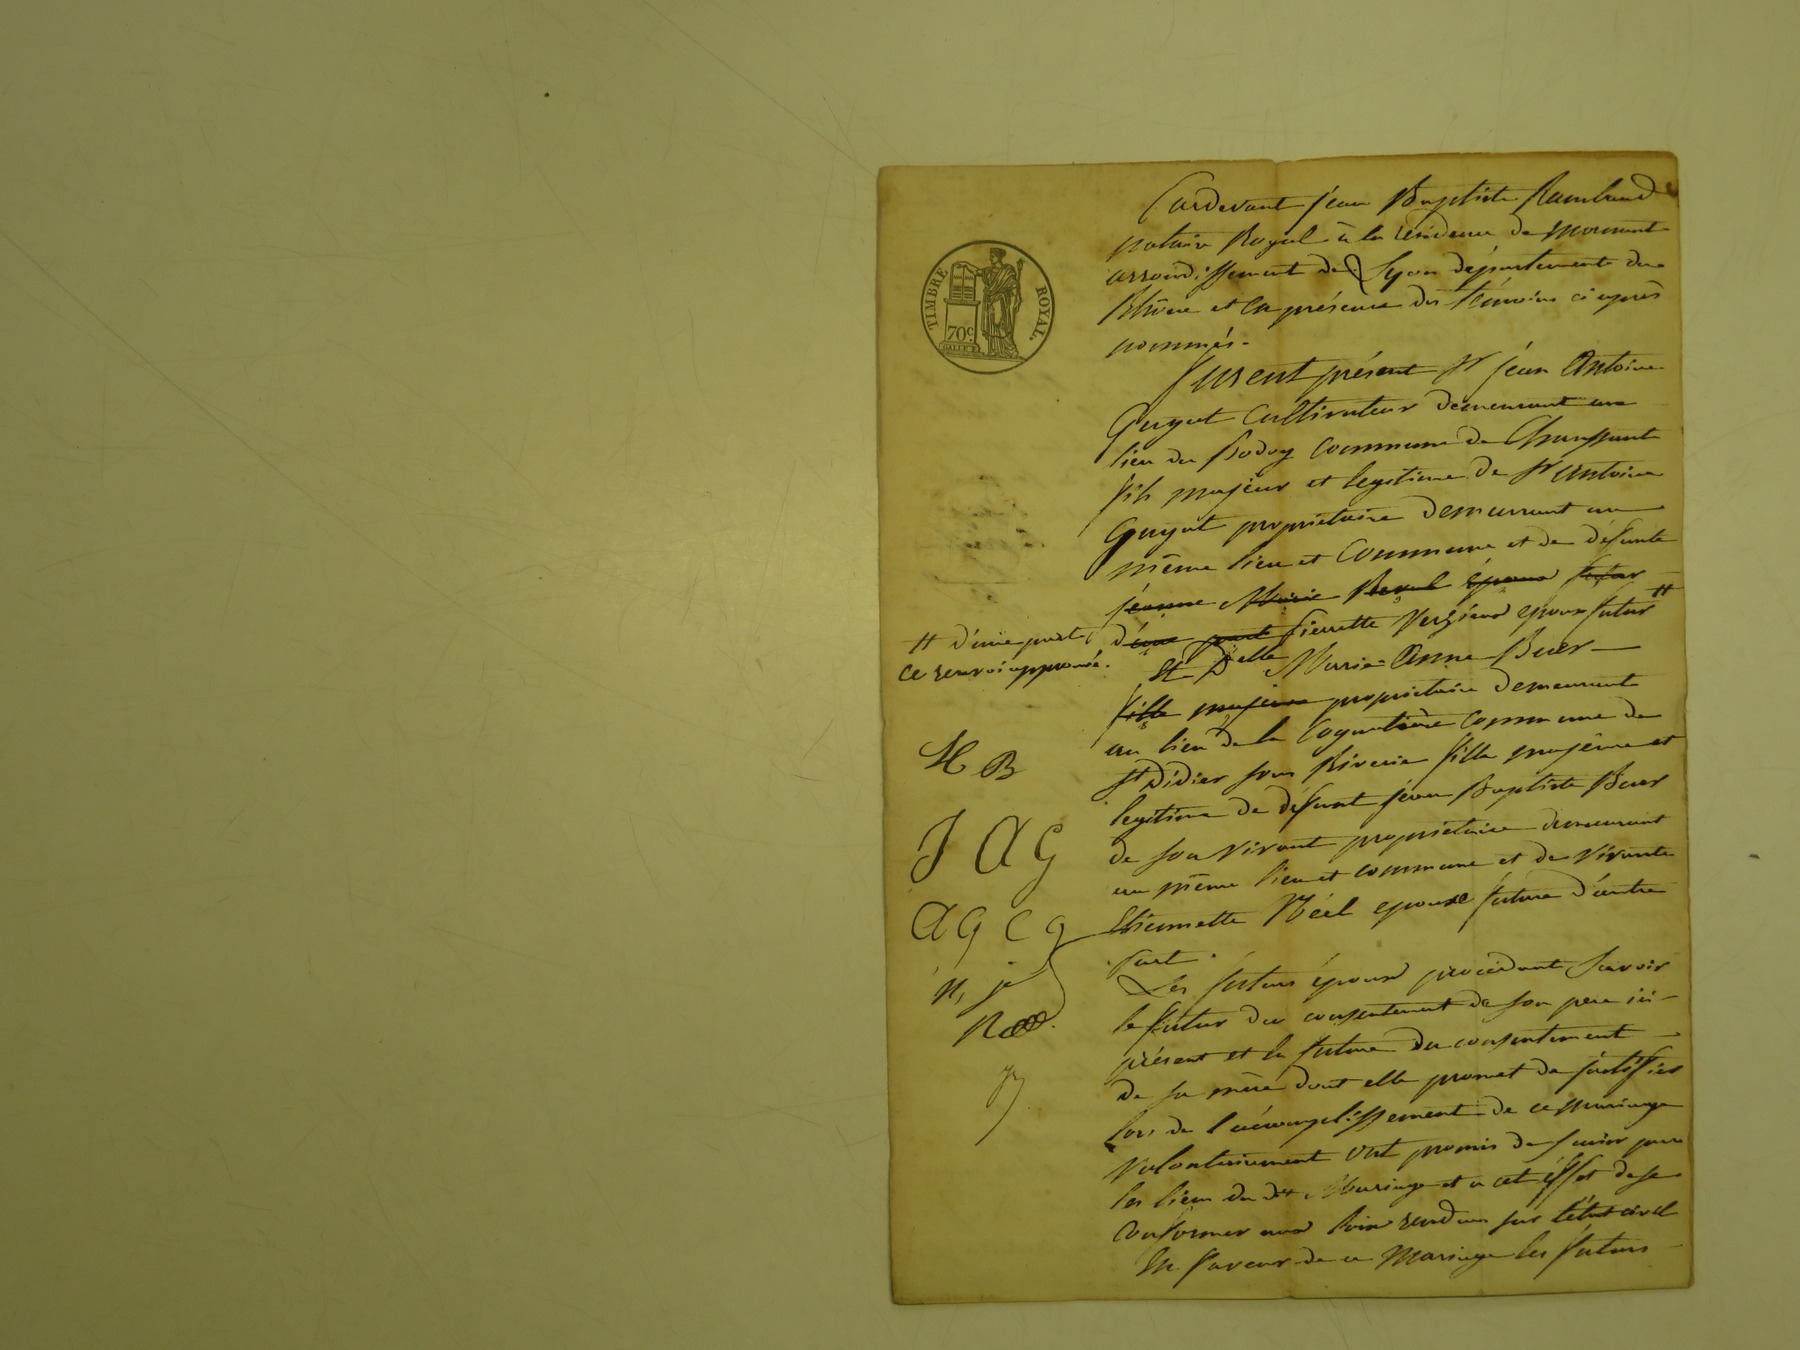 Pardevant jean Baptiste Rambaud
notaire Royal à la résidence de Mornant
arrondissement de Lyon département du
Rhône et en présence des témoins ci après
nommés.
TIMBRE ROYAL.
70c
Furent présent Sr jean Antoine
Guyot Cultivateur demeurant au
lieu du Commune de Chaussant
fils majeur et legitime de Sr Antoine
Guyot propriétaire demeurant au
même lieu et Commune et de défunte
jeanne Marie époux futur
d'une part Pierrette époux futur #
# d'une part
ce renvoi approuvé.
Et Delle Marie Anne Buer
fille majeure propriétaire demeurant
au lieu de la commune de
St Didier sous Riverie fille majeure et
legitime de défunt jean Baptiste Buer
de son vivant propriétaire demeurant
au même lieu et commune et de vivante
Etiennette Néel epouse future d'autre
part.
M B
J A G
A G C G
N, j
R
Les futurs époux procédant Savoir
le futur du consentement de son pere ici
présent et la future du consentement
de sa mère dont elle promet de justifier
lors de l'accomplissement de ce mariage
Volontairement ont promis de s'unir par
les liens du dt Mariage et a cet effet de se
conformer aux loix rendues sur l'état civil
En faveur de ce Mariage les futurs